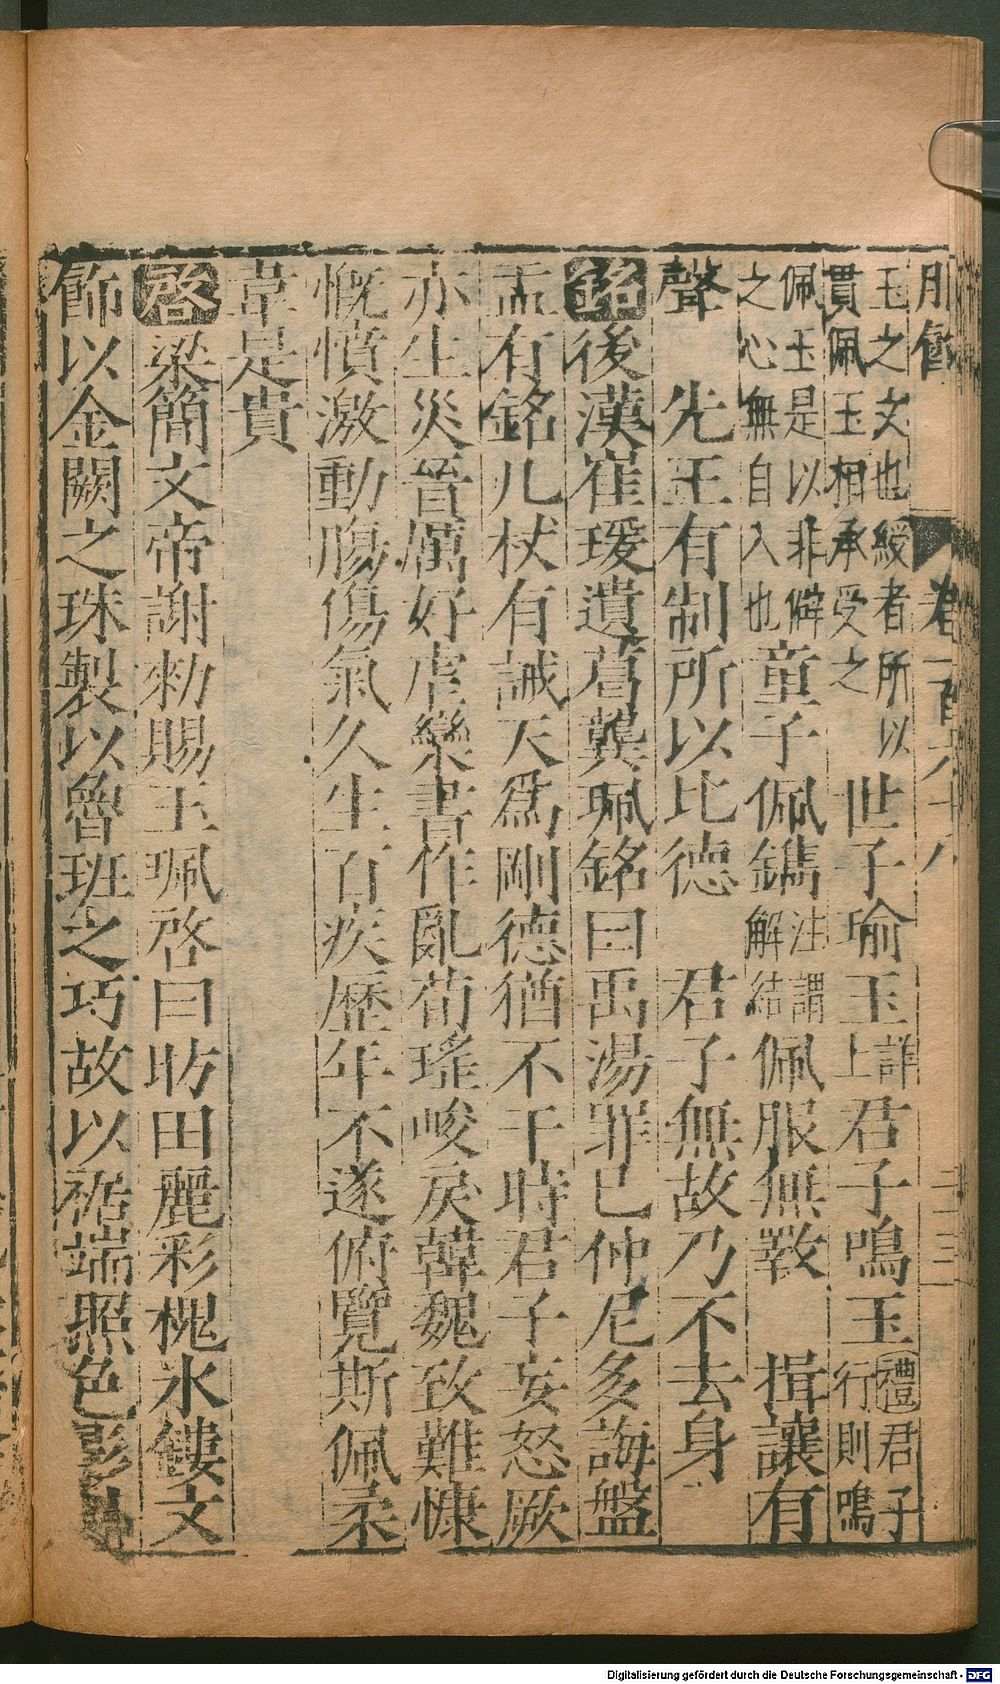 玉之文也綬者所以
貫佩玉相承受之
世子瑜玉
詳
上
君子鳴玉
禮君子
行則鳴
佩玉是以非僻
之心無自入也
童子佩鐫
注謂
解結
佩服無斁　揖讓有
聲　先王有制所以比德　君子無故乃不去身
銘後漢崔瑗遺葛龔珮銘曰禹湯罪已仲尼多誨盤
盂有銘几杖有誡天爲剛德猶不干時君子妄怒厥
亦生災晉厲好虐欒書作亂荀瑤峻戾韓魏致難慷
慨憤激動腸傷氣久生百疾歷年不遂俯覽斯佩柔
韋是貴
啓梁簡文帝謝勑賜玉珮啓曰昉田麗彩槐氷鏤文
飾以金闕之珠製以魯班之巧故以裾端照色影
Digitalisierung gefördert durch die Deutsche Forschungsgemeinschaft - DFG